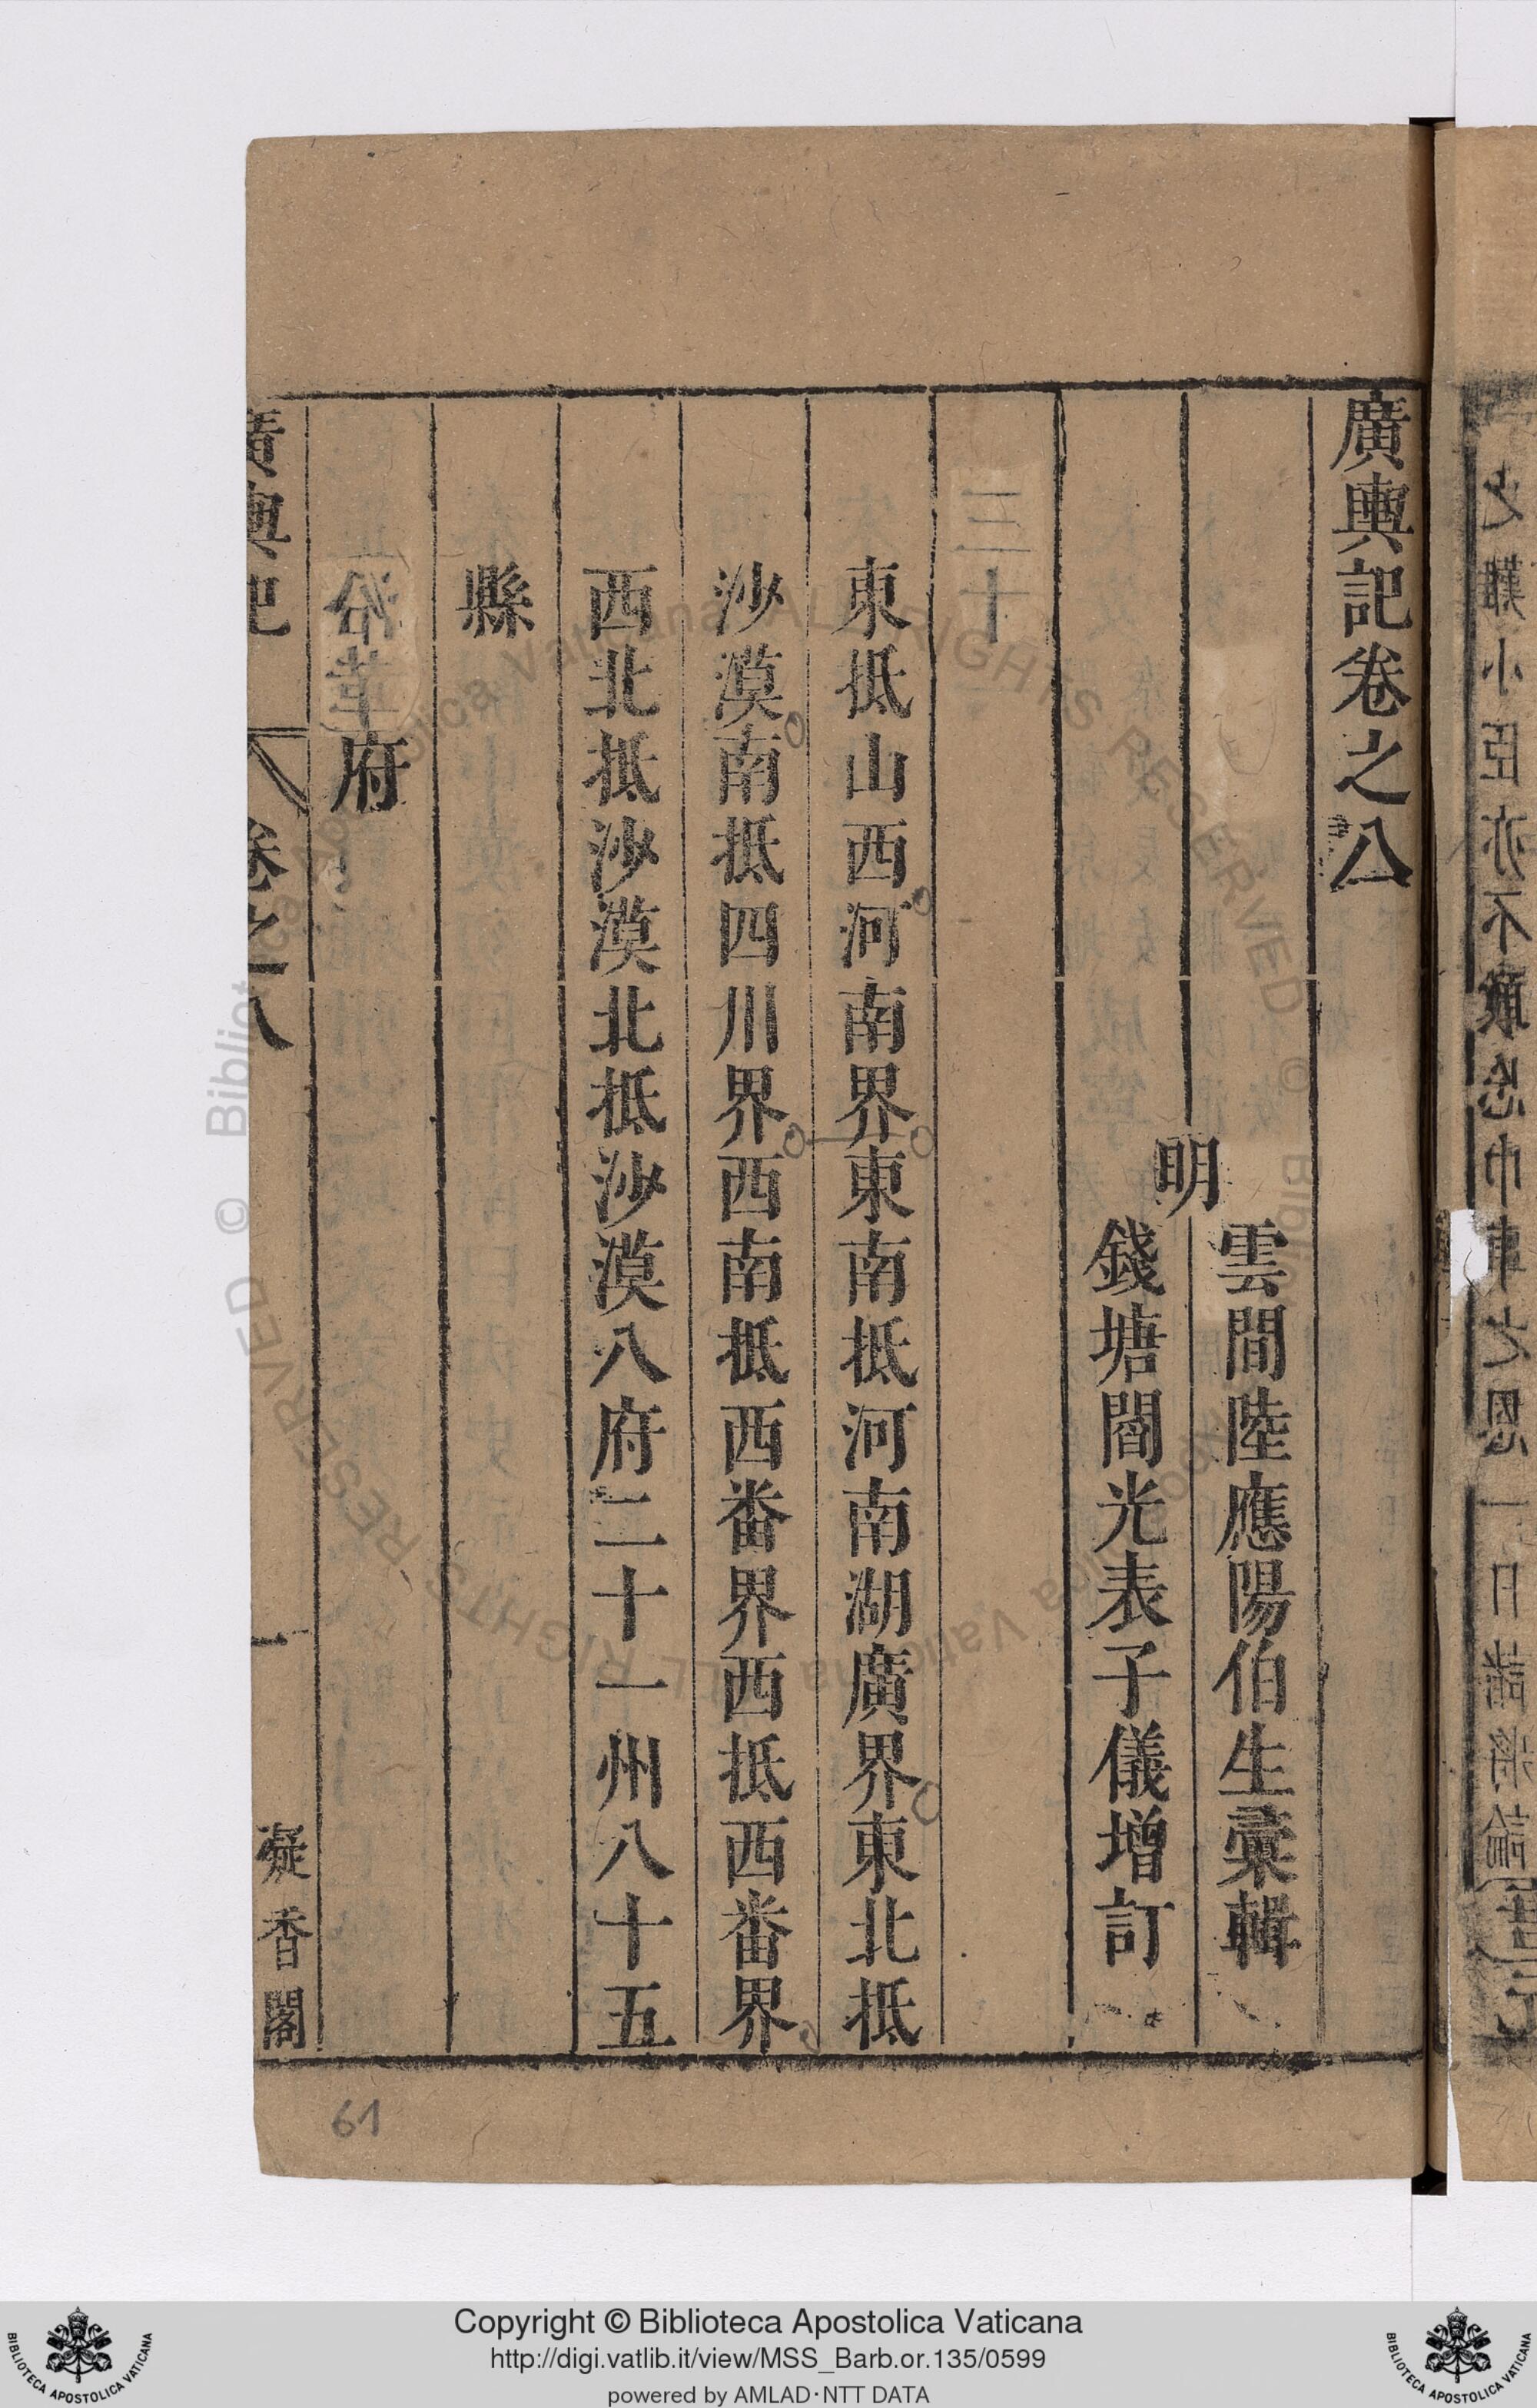 廣輿記卷之八
明
雲間陸應陽伯生彙輯
錢塘閻光表子儀增訂
三十
東抵山西河南界東南抵河南湖廣界東北抵
沙漠南抵四川界西南抵西番界西抵西番界
西北抵沙漠北抵沙漠八府二十一州八十五
縣
沿革府
廣輿記
卷之八
一
凝香閣
61
Copyright © Biblioteca Apostolica Vaticana
http://digi.vatlib.it/view/MSS_Barb.or.135/0599
powered by AMLAD·NTT DATA
BIBLIOTECA APOSTOLICA VATICANA
BIBLIOTECA APOSTOLICA VATICANA